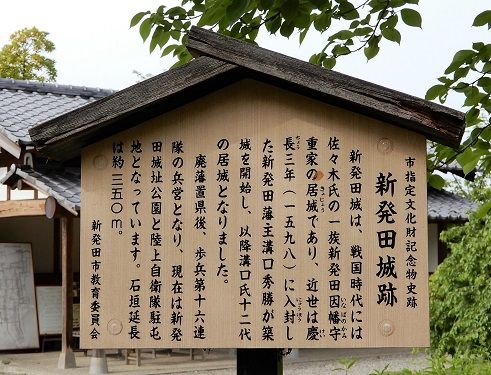 市指定文化財記念物史跡
新発田城跡
新発田城は、戦国時代には
佐々木氏の一族新発田因幡守
いなばのかみ
重家の居城であり、近世は慶
きょじょう
けい
長三年（一五九八）に入封し
ちょう
にゅうほう
た新発田藩主溝口秀勝が築
城を開始し、以降溝口氏十二代
の居城となりました。
廃藩置県後、歩兵第十六連
隊の兵営となり、現在は新発
田城址公園と陸上自衛隊駐屯
地となっています。石垣延長
は約三五〇m。
新発田市教育委員会